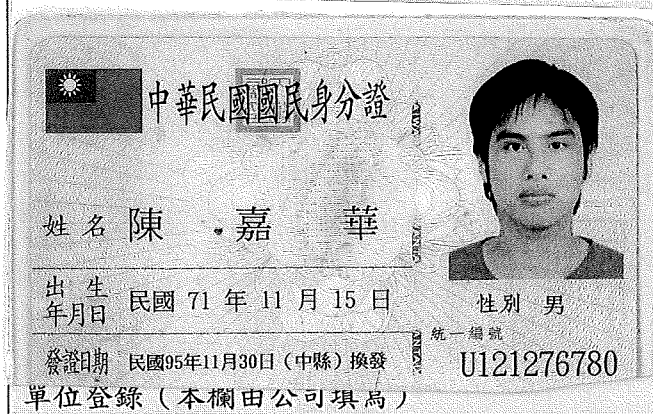 中華民國國民身分證
姓名 陳嘉華
出生年月日 民國 71 年 11 月 15 日
性別 男
統一編號
發證日期 民國95年11月30日(中縣)換發
U121276780
單位登錄(本欄由公司填寫)